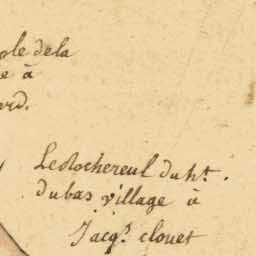 ole de la
e à
ord.
Le Rochereul du ht.
du bas village à
Jacqs. clouet